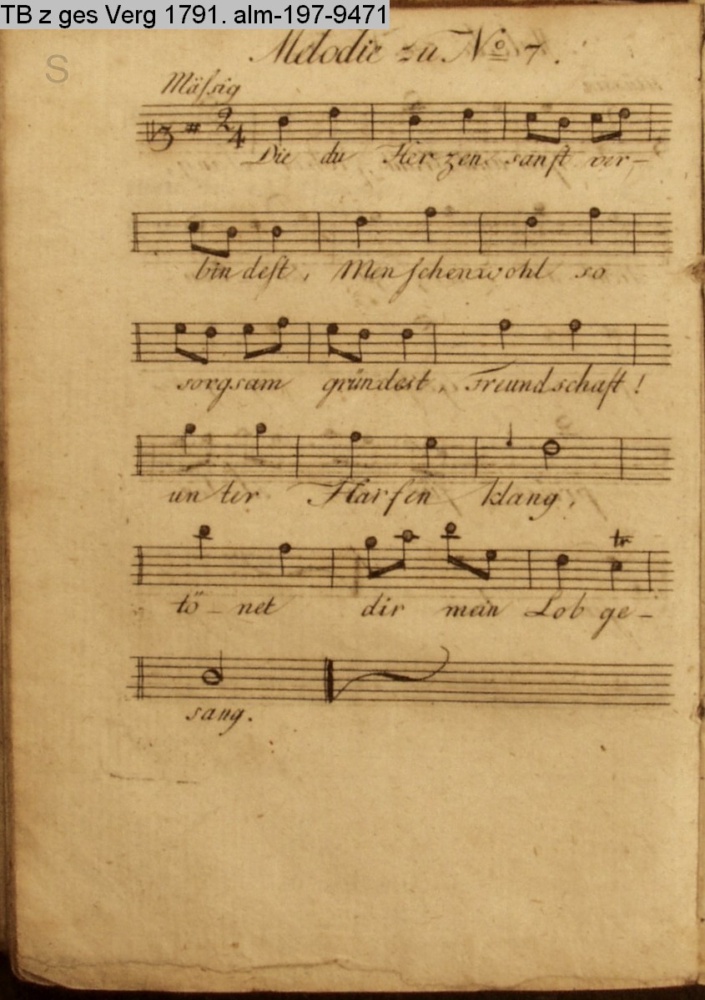 TB z ges Verg 1791. alm-197-9471
S
Melodie zu No 7.
Mässig
2
4
Die du Herzen sanft ver-
bindest, Menschenwohl so
sorgsam gründest, Freundschaft!
unter Harfen klang,
tr
tö-net dir mein Lob ge-
sang.